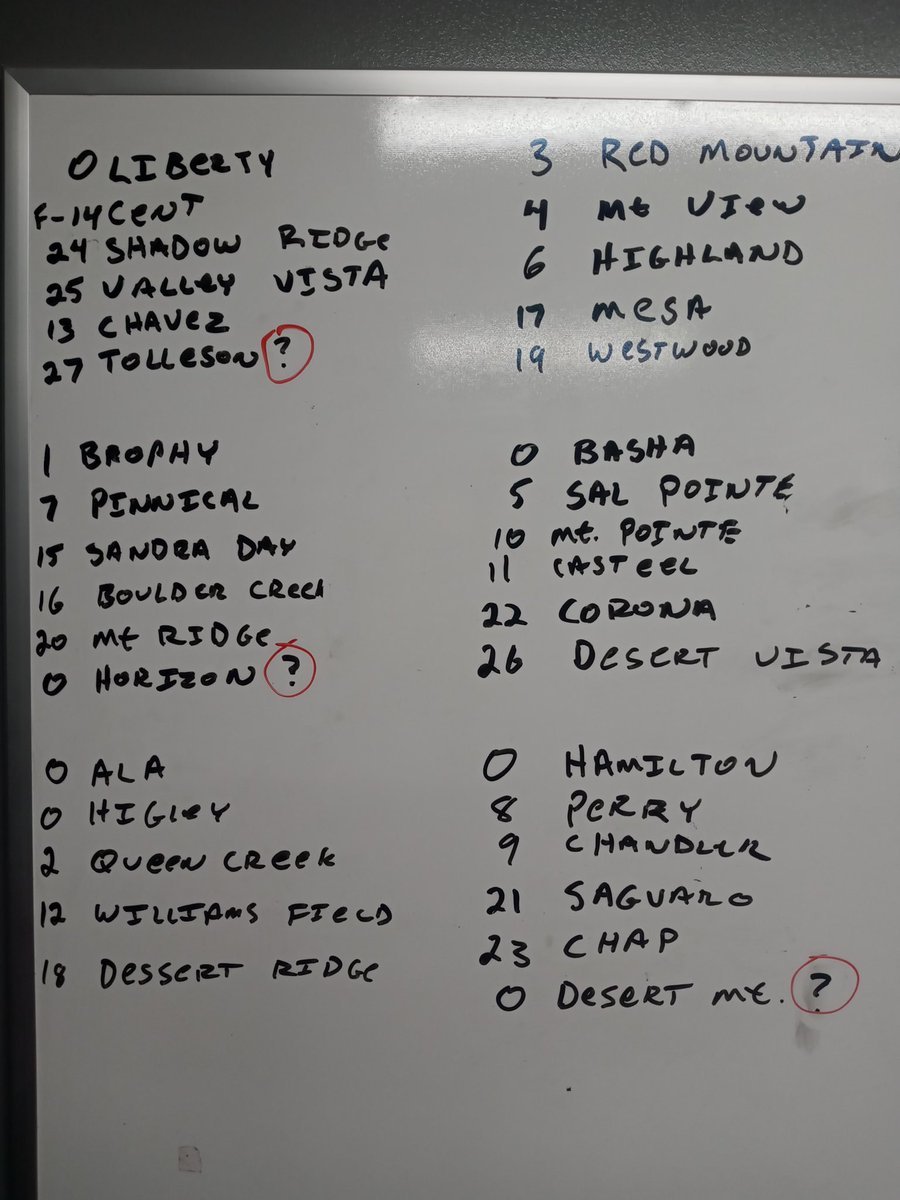 0 LIBERTY
F-14 CENT
24 SHADOW RIDGE
25 VALLEY VISTA
13 CHAVEZ
27 TOLLESON ?
3 RED MOUNTAIN
4 Mt VIEW
6 HIGHLAND
17 MESA
19 WESTWOOD
1 BROPHY
7 PINNICAL
15 SANDRA DAY
16 BOULDER CREEK
20 Mt RIDGE
0 HORIZON ?
0 BASHA
5 SAL POINTE
10 Mt. POINTE
11 CASTEEL
22 CORONA
26 DESERT VISTA
0 ALA
0 HIGLEY
2 QUEEN CREEK
12 WILLIAMS FIELD
18 DESSERT RIDGE
0 HAMILTON
8 PERRY
9 CHANDLER
21 SAGUARO
23 CHAP
0 DESERT Mt. ?